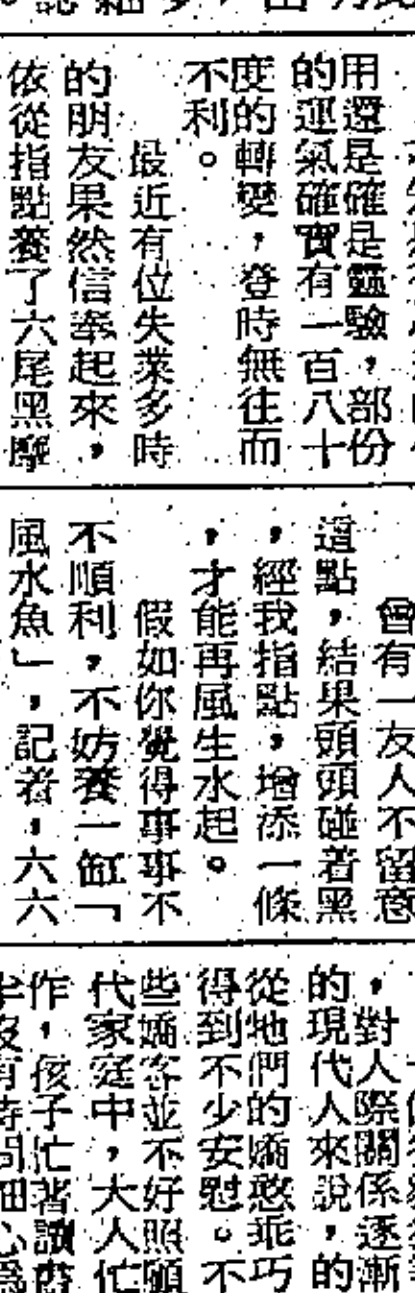 用還是確是靈驗，部份
的運氣確實有一百八十
度的轉變，登時無往而
不利。
最近有位失業多時
的朋友果然信奉起來，
依從指點養了六尾黑摩
曾有一友人不留意
這點，結果頭頭碰着黑
，經我指點，增添一條
，才能再風生水起。
假如你覺得事事不
不順利，不妨養一缸「
風水魚」，記着，六六
，對人際關係逐漸
的現代人來說，的
從牠們的嬌憨乖巧
得到不少安慰。不
些嬌客並不好照顧
代家庭中，大人忙
作，孩子忙著讀書